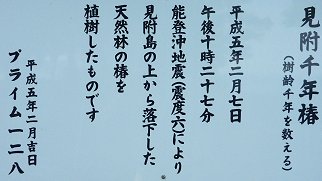 見附千年椿
(樹齢千年を数える)
平成五年二月七日
午後十時二十七分
能登沖地震(震度六)により
見附島の上から落下した
天然林の椿を
植樹したものです
平成五年二月吉日
プライム一二八